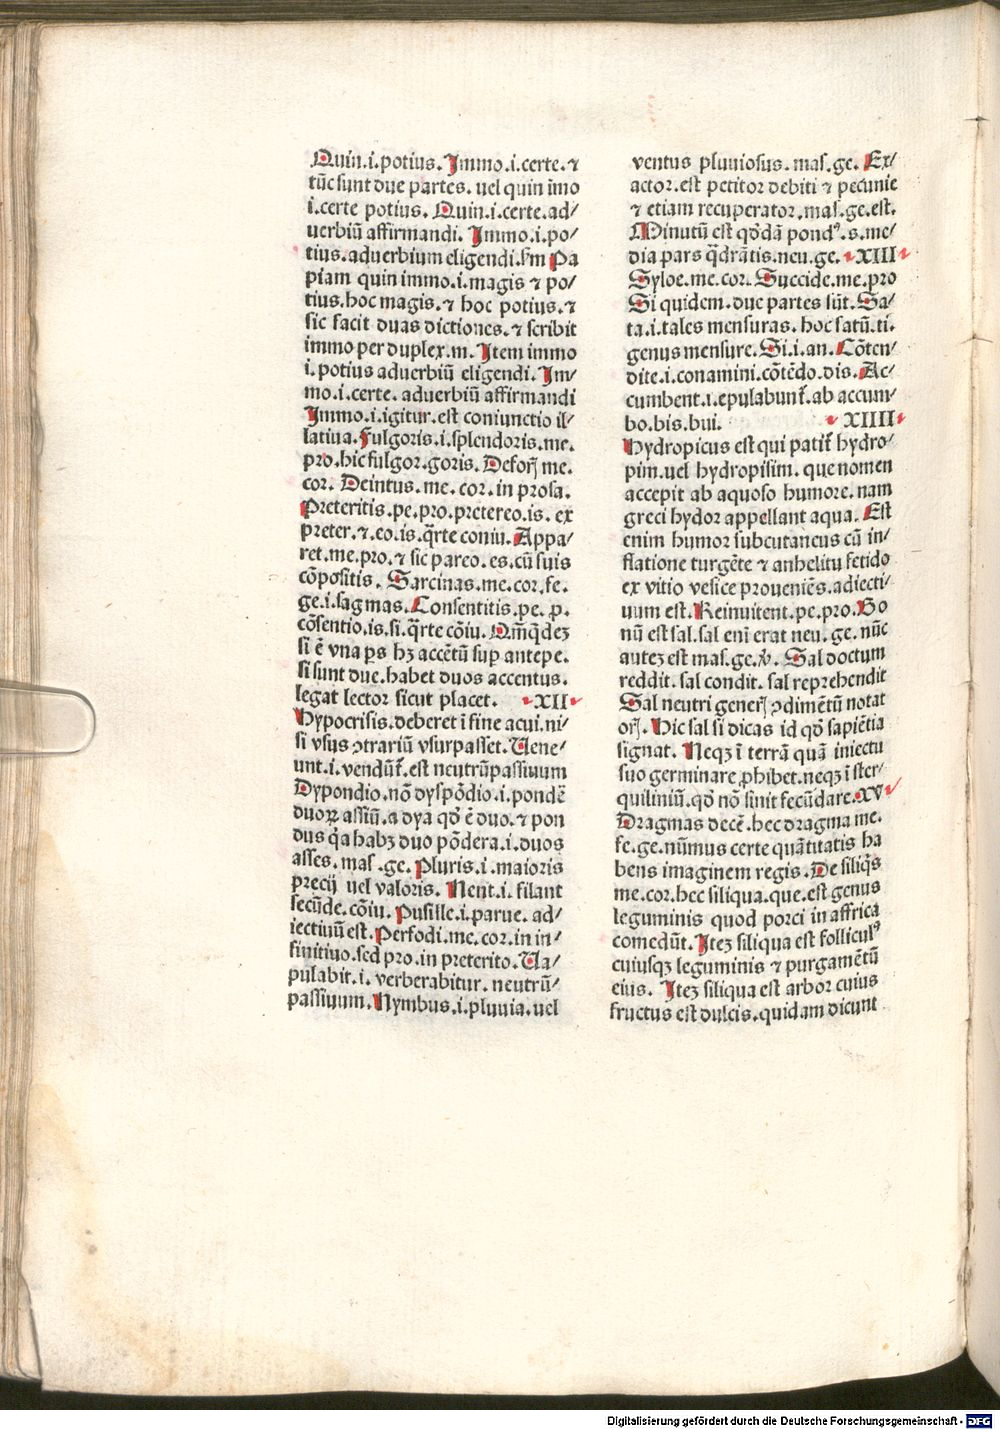 Quin.i.potius. Immo.i.certe.⁊
tūc sunt due partes. uel quin īmo
i.certe potius. Quin.i.certe.ad/
uerbiū affirmandi. Immo.i.po/
tius.aduerbium eligendi.ẜm Pa
piam quin immo.i.magis ⁊ po/
tius.hoc magis.⁊ hoc potius.⁊
sic facit duas dictiones.⁊ scribit
immo per duplex.m. Item immo
i.potius aduerbiū eligendi. Im/
mo.i.certe. aduerbiū affirmandi
Immo.i.igitur.est coniunctio il/
latiua. Fulgoris.i.splendoris.me.
pro.hic fulgor.goris. Deforꝭ me.
cor. Deintus.me.cor.in prosa.
Preteritis.pe.pro.pretereo.is. ex
preter.⁊.eo.is.q̄rte coniu. Appa/
ret.me.pro.⁊ sic pareo.es.cū suis
cōpositis. Sarcinas.me.cor.fe.
ge.i.sagmas. Consentitis.pe.p.
cōsentio.is.si.q̄rte cōiu. Om̄q̄dez
si ē vna ꝑs hꝫ accētū suꝑ antepe.
si sunt due.habet duos accentus.
legat lector sicut placet. XII
Hypocrisis.deberet ī fine acui.ni/
si vsus ꝯtrariū vsurpasset. Uene/
unt.i.vendūt̄.est neutrūpassiuum
Dypondio.nō dyspōdio.i.pondē
duoꝝ assiū.a dya qd̄ ē duo.⁊ pon
dus q̄a habꝫ duo pōdera.i.duos
asses.mas.ge. Pluris.i.maioris
precij uel valoris. Nent.i.filant
secūde.cōiu. Pusille.i.parue. ad/
iectiuū est. Perfodi.me.cor.in in/
finitiuo.sed pro.in preterito. Ua/
pulabit.i. verberabitur. neutrū/
passiuum. Nymbus.i.pluuia.uel
ventus pluuiosus.mas.ge. Ex/
actor.est petitor debiti ⁊ pecunie
⁊ etiam recuperator.mas.ge.est.
Minutū est qd̄dā pondꝰ.s.me/
dia pars q̄drātis.neu.ge. XIII
Syloe.me.cor. Succide.me.pro
Si quidem.due partes sūt. Sa/
ta.i.tales mensuras.hoc satū.ti.
genus mensure. Si.i.an. Cōten/
dite.i.conamini.cōtēdo.dis. Ac/
cumbent.i.epulabunt̄.ab accum/
bo.bis.bui. XIIII
Hydropicus est qui patit̄ hydro/
pim.uel hydropisim. que nomen
accepit ab aquoso humore.nam
greci hydor appellant aqua. Est
enim humor subcutaneus cū in/
flatione turgēte ⁊ anhelitu fetido
ex vitio vesice proueniēs.adiecti/
uum est. Reinuitent.pe.pro. Bo
nū est sal.sal eni erat neu.ge.nūc
autez est mas.ge.ꝟ. Sal doctum
reddit.sal condit.sal reprehendit
Sal neutri generꝭ ꝯdimētū notat
orꝭ. Hic sal si dicas id qd̄ sapiētia
signat. Neqꝫ ī terrā quā iniectu
suo germinare ꝓhibet.neqꝫ ī ster/
quiliniū.qd̄ nō sinit fecūdare. XV
Dragmas decē.hec dragma me.
fe.ge.nūmus certe quātitatis ha
bens imaginem regis. De siliq̄s
me.cor.hec siliqua.que.est genus
leguminis quod porci in affrica
comedūt. Itez siliqua est folliculꝰ
cuiusqꝫ leguminis ⁊ purgamētū
eius. Itez siliqua est arbor cuius
fructus est dulcis.quidam dicunt
Digitalisierung gefördert durch die Deutsche Forschungsgemeinschaft - DFG